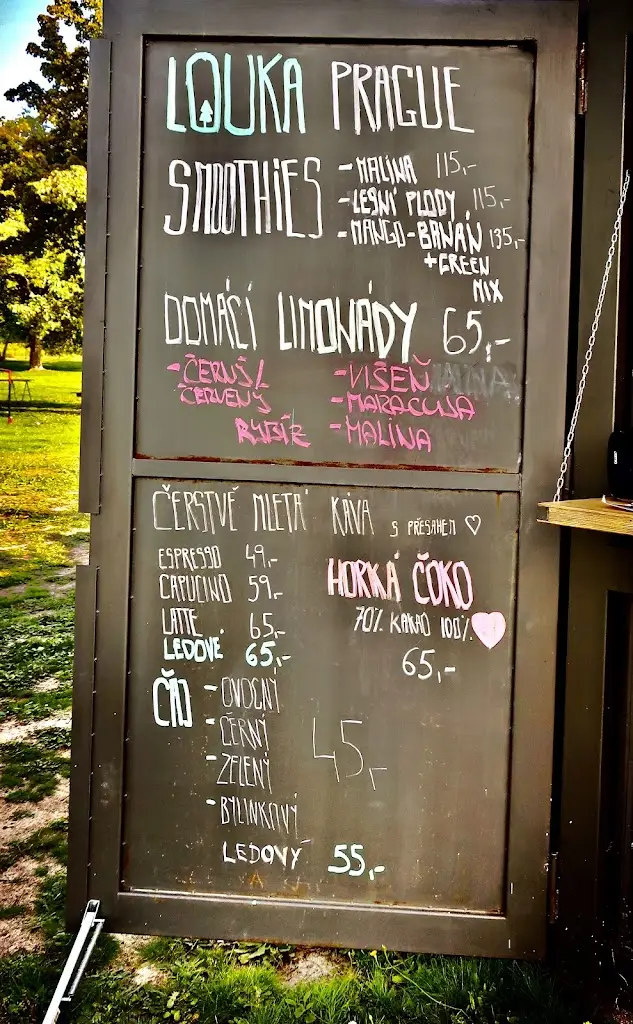 LOUKA PRAGUE
SMOOTHIES - MALINA 115,-
- LESNÍ PLODY 115,-
- MANGO-BANÁN 135,-
+ GREEN
MIX
DOMÁCÍ LIMONÁDY 65,-
- ČERNÝ/ - VIŠEŇ
ČERVENÝ - MARACUJA
RYBÍZ - MALINA
ČERSTVĚ MLETÁ KÁVA S PŘESAHEM ♡
ESPRESSO 49,-
CAPUCINO 59,-
LATTE 65,-
LEDOVÉ 65,-
HORKÁ ČOKO
70% KAKAO 100%
65,-
ČAJ - OVOCNÝ
- ČERNÝ
- ZELENÝ
- BYLINKOVÝ
45,-
LEDOVÝ 55,-